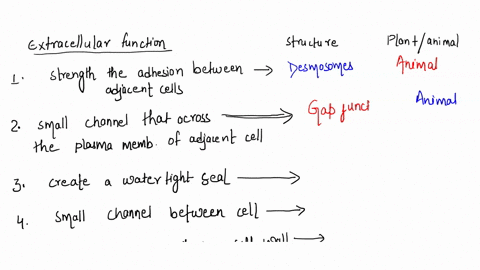 Extracellular function structure Plant/animal
1. strength the adhesion between → Desmosomes Animal
adjacent cells
2. small channel that across → Gap funct Animal
the plasma memb. of adjacent cell
3. create a water tight seal →
4. small channel between cell →